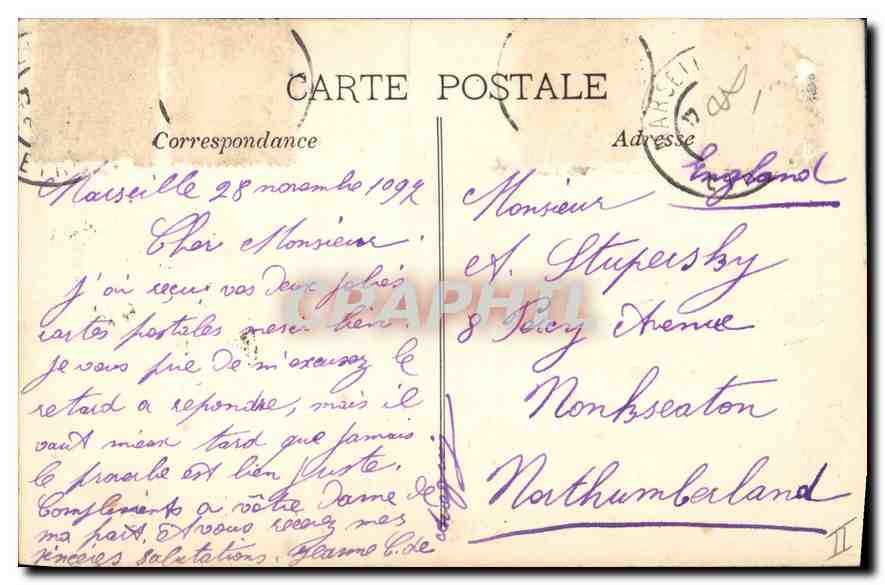 CARTE POSTALE
Correspondance
Adresse
MARSEILL
Marseille 28 novembre
Cher Monsieur.
J'ai reçu vos deux jolies
cartes postales merci bien.
Je vous prie de m'excusez le
retard a repondre, mais il
vaut mieux tard que jamais
le proverbe est bien juste.
Compliments a vôtre Dame de
ma part. Et vous recevez mes
sincères salutations. Jeanne C. de
England
Monsieur
A. Stupersky
8 Percy Avenue
Monkseaton
Northumberland
II
CPAPHIL